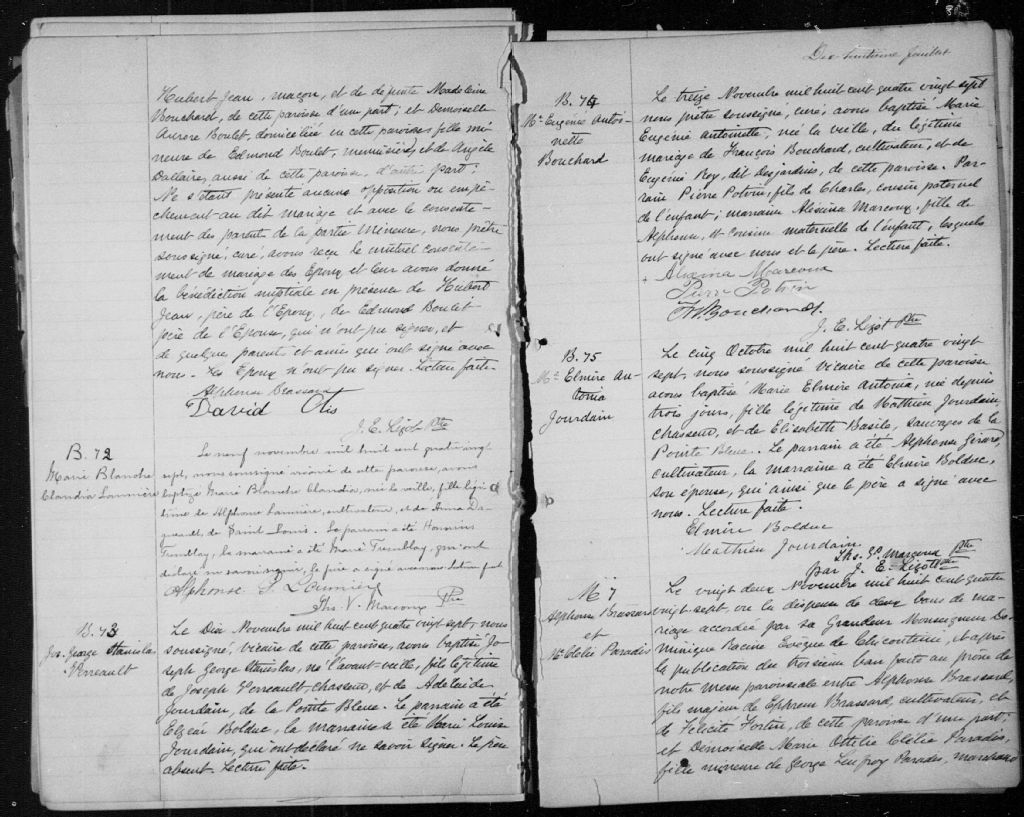 Hubert Jean, maçon, et de défunte Madeleine
Bouchard, de cette paroisse d'une part; et Demoiselle
Aurore Boulet, domiciliée en cette paroisse, fille mi-
neure de Edmond Boulet, menuisier, et de Angèle
Dallaire, aussi de cette paroisse, d'autre part;
Ne s'étant présenté aucune opposition ou empê-
chement au dit mariage et avec le consente-
ment des parents de la partie mineure, nous prêtre
soussigné, curé, avons reçu le mutuel consente-
ment de mariage des Epoux et leur avons donné
la bénédiction nuptiale en présence de Hubert
Jean, père de l'Epoux, de Edmond Boulet
père de l'Epouse, qui n'ont pu signer, et
de quelques parents et amis qui ont signé avec
nous. Les Epoux n'ont pu signer. Lecture faite.
Alphonse Brassard
David Otis
J. E. Lizot Ptre
B. 72
Marie Blanche
Claudia Larmière
Le neuf novembre mil huit cent quatre vingt
sept, nous soussigné vicaire de cette paroisse, avons
baptisé Marie Blanche Claudia, née la veille, fille légi-
time de Alphonse Larmière, cultivateur, et de Anna
de Saint Louis. Le parrain a été
Tremblay, la marraine a été Marie Tremblay, qui ont
déclaré ne savoir signer, le père a signé avec nous. Lecture faite
Alphonse
Ths. V. Marcoux Ptre
B. 73
Jos. George Stanislas
Verreault
Le Dix Novembre mil huit cent quatre vingt sept, nous
soussigné, vicaire de cette paroisse, avons baptisé Jo-
seph George Stanislas, né l'avant-veille, fils légitime
de Joseph Verreault, chasseur, et de Adelaïde
Jourdain, de la Pointe Bleue. Le parrain a été
Elzéar Bolduc, la marraine a été Marie Louise
Jourdain, qui ont déclaré ne savoir signer. Le père
absent. Lecture faite.
Dix huitième feuillet
B. 74
Me Eugénie Antoi-
nette
Bouchard
Le treize Novembre mil huit cent quatre vingt sept
nous prêtre soussigné, curé, avons baptisé Marie
Eugénie Antoinette, née la veille, du légitime
mariage de François Bouchard, cultivateur, et de
Eugénie Roy, dit Desjardins, de cette paroisse. Par-
rain Pierre Potvin, fils de Charles, cousin paternel
de l'enfant; marraine Aléxina Marcoux, fille de
Alphonse, et cousine maternelle de l'enfant, lesquels
ont signé avec nous et le père. Lecture faite.
Aléxina Marcoux
Pierr Potvin
F. Bouchard
J. E. Lizot Ptre
B. 75
Me Elmire An-
tonia
Jourdain
Le cinq Octobre mil huit cent quatre vingt
sept, nous soussigné vicaire de cette paroisse
avons baptisé Marie Elmire Antonia, née depuis
trois jours, fille légitime de Mathieu Jourdain,
chasseur, et de Elisabeth Basile, sauvages de la
Pointe Bleue. Le parrain a été Alphonse Girard,
cultivateur, la marraine a été Elmire Bolduc,
son épouse, qui ainsi que le père a signé avec
nous. Lecture faite.
Elmire Bolduc
Mathieu Jourdain
Ths. Gs. Marcoux Ptre
par J. E. Lizot Ptre
M 7
Alphonse Brassard
et
M. Clélie Paradis
Le vingt deux Novembre mil huit cent quatre
vingt-sept, vu la dispense de deux bans de ma-
riage accordée par sa Grandeur Monseigneur Do-
minique Racine Evêque de Chicoutimi, et après
la publication du troisième ban faite au prône de
notre messe paroissiale entre Alphonse Brassard,
fils majeur de Ephrem Brassard, cultivateur, et
de Félicité Fortin, de cette paroisse d'une part;
et Demoiselle Marie Ottélie Clélie Paradis,
fille mineure de George Leufroy Paradis, marchand